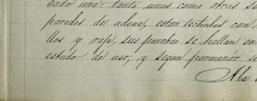 una: tanto unas como otras s
paredes de adobe, estan techadas con
llos y rafa, sus puertas se hallan en
estado de uso, y segun permanor s